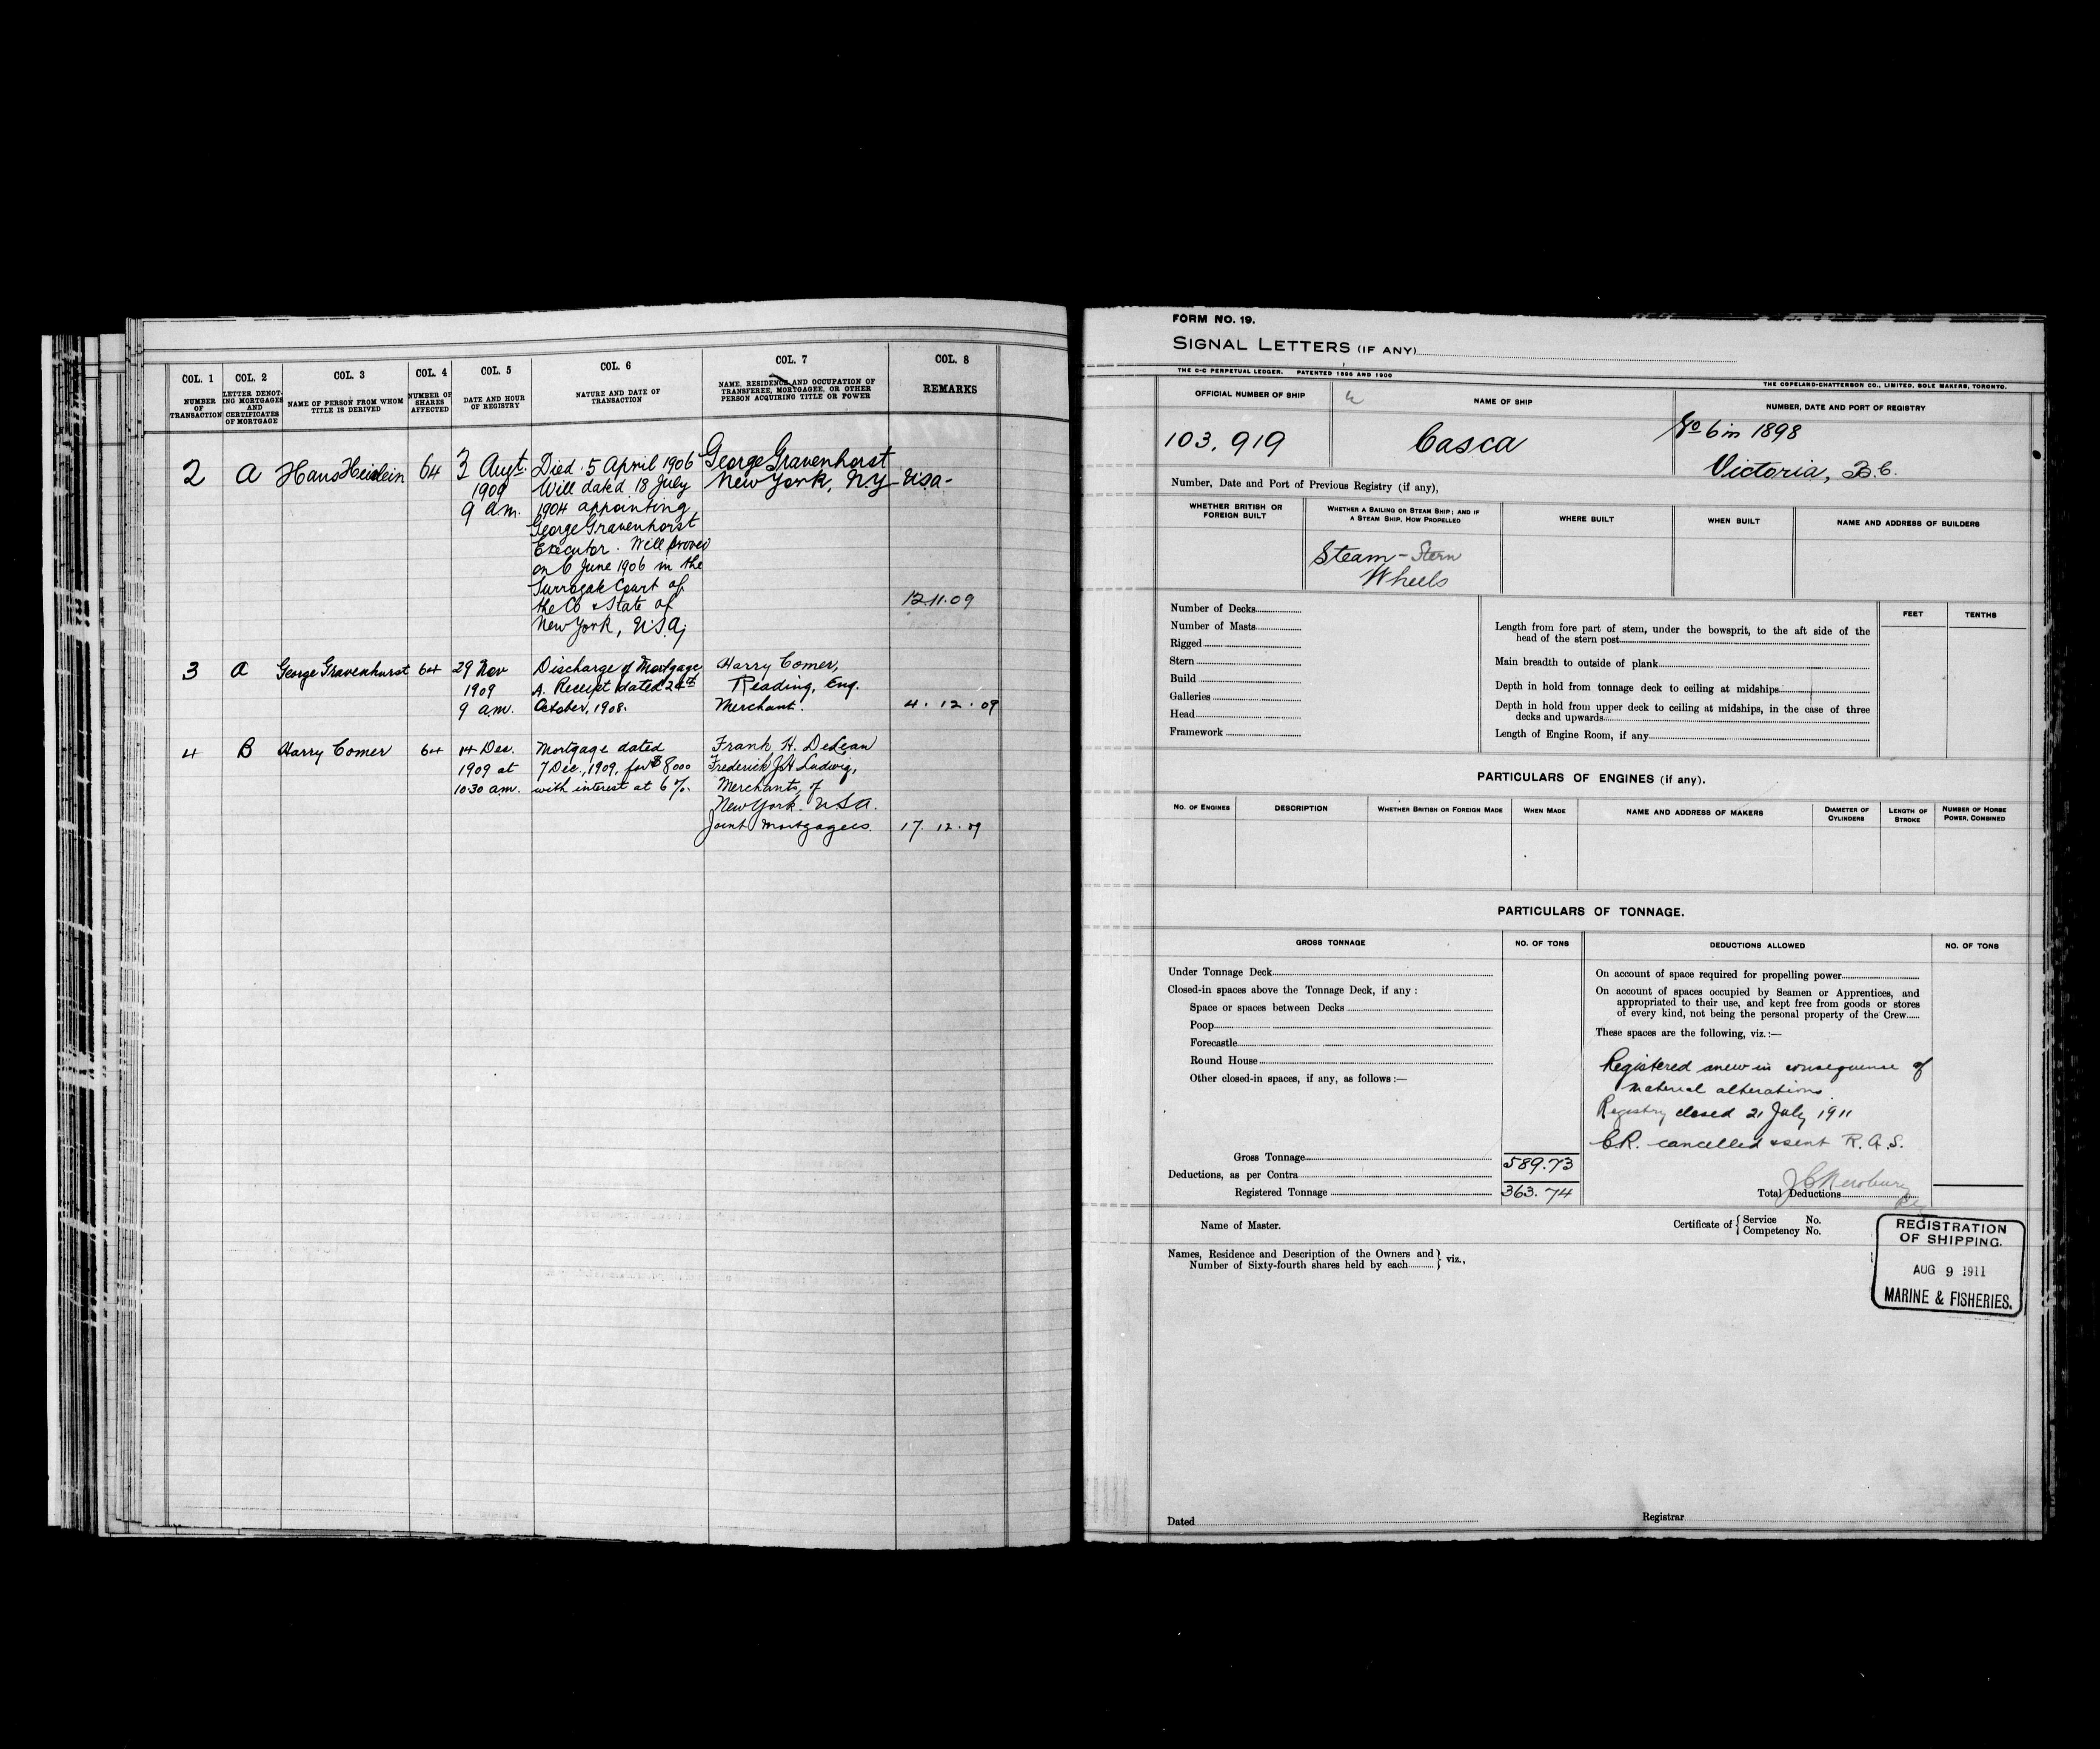 COL. 1
NUMBER
OF
TRANSACTION
COL. 2
LETTER DENOT-
ING MORTGAGES
AND
CERTIFICATES
OF MORTGAGE
COL. 3
NAME OF PERSON FROM WHOM
TITLE IS DERIVED
COL. 4
NUMBER OF
SHARES
AFFECTED
COL. 5
DATE AND HOUR
OF REGISTRY
COL. 6
NATURE AND DATE OF
TRANSACTION
COL. 7
NAME, RESIDENCE AND OCCUPATION OF
TRANSFEREE, MORTGAGEE, OR OTHER
PERSON ACQUIRING TITLE OR POWER
COL. 8
REMARKS
2
A
Hans
64
3 Augt.
1909
9 a.m.
Died 5 April 1906
Will dated 18 July
1904 appointing
George Gravenhorst
Executor. Will proved
on 6 June 1906 in the
Surrogate Court of
the Co & State of
New York, U.S.A;
George Gravenhorst
New York, N.Y. U.S.A.
12.11.09
3
A
George Gravenhurst
64
29 Nov
1909
9 a.m.
Discharge of Mortgage
A. Receipt dated 24th
October, 1908.
Harry Comer,
Reading, Eng.
Merchant.
4. 12. 09
4
B
Harry Comer
64
14 Dec.
1909 at
10.30 a.m.
Mortgage dated
7 Dec., 1909, for $8000
with interest at 6%.
Frank H.
Frederick J H Ludwig,
Merchants, of
New York. U.S.A.
Joint Mortgagees.
17. 12. 09
FORM NO. 19.
SIGNAL LETTERS (IF ANY)
THE C-C PERPETUAL LEDGER. PATENTED 1896 AND 1900
THE COPELAND-CHATTERSON CO., LIMITED, SOLE MAKERS, TORONTO.
OFFICIAL NUMBER OF SHIP
103,919
NAME OF SHIP
Casca
NUMBER, DATE AND PORT OF REGISTRY
No 6 in 1898
Victoria, B.C.
Number, Date and Port of Previous Registry (if any),
WHETHER BRITISH OR
FOREIGN BUILT
WHETHER A SAILING OR STEAM SHIP; AND IF
A STEAM SHIP, HOW PROPELLED
WHERE BUILT
WHEN BUILT
NAME AND ADDRESS OF BUILDERS
Steam - Stern
Wheels
Number of Decks
Number of Masts
Rigged
Stern
Build
Galleries
Head
Framework
FEET
TENTHS
Length from fore part of stem, under the bowsprit, to the aft side of the
head of the stern post
Main breadth to outside of plank
Depth in hold from tonnage deck to ceiling at midships
Depth in hold from upper deck to ceiling at midships, in the case of three
decks and upwards
Length of Engine Room, if any
PARTICULARS OF ENGINES (if any).
NO. OF ENGINES
DESCRIPTION
WHETHER BRITISH OR FOREIGN MADE
WHEN MADE
NAME AND ADDRESS OF MAKERS
DIAMETER OF
CYLINDERS
LENGTH OF
STROKE
NUMBER OF HORSE
POWER, COMBINED
PARTICULARS OF TONNAGE.
GROSS TONNAGE
NO. OF TONS
DEDUCTIONS ALLOWED
NO. OF TONS
Under Tonnage Deck
Closed-in spaces above the Tonnage Deck, if any :
Space or spaces between Decks
Poop
Forecastle
Round House
Other closed-in spaces, if any, as follows :—
Gross Tonnage
589.73
Deductions, as per Contra
Registered Tonnage
363.74
On account of space required for propelling power
On account of spaces occupied by Seamen or Apprentices, and
appropriated to their use, and kept free from goods or stores
of every kind, not being the personal property of the Crew
These spaces are the following, viz.:—
Registered anew in consequence of
material alterations.
Registry closed 21 July 1911
C.R. cancelled & sent R.G.S.
Total Deductions
Name of Master.
Certificate of { Service No.
Competency No.
Names, Residence and Description of the Owners and
Number of Sixty-fourth shares held by each } viz.,
REGISTRATION
OF SHIPPING.
AUG 9 1911
MARINE & FISHERIES.
Dated
Registrar